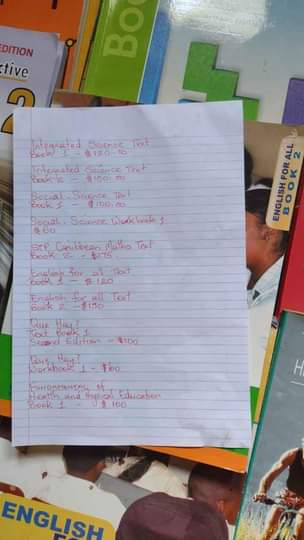 EDITION
ctive
2
Boo
ENGLISH FOR ALL
BOOK 2
Integrated Science Text
Book 1 - $120.00
Integrated Science Text
Book 2 - $150.00
Social Science Text
Book 1 - $100.00
Social Science Workbook 1
$60
STP Caribbean Maths Text
Book 2 - $175
English for all Text
Book 1 - $120
English for all Text
Book 2 - $150
Que Hay?
Text Book 1
Second Edition - $100
Que Hay?
Workbook 1 - $60
Fundamentals of
Health and Physical Education
Book 1 - $100
H
ENGLISH